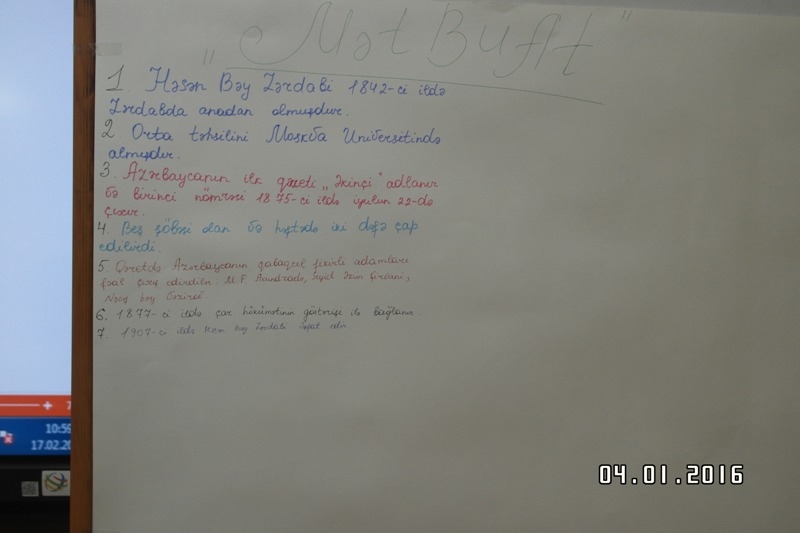 "Mət BuAt"
1. Həsən Bəy Zərdabi 1842-ci ildə
Zərdabda anadan olmuşdur.
2. Orta təhsilini Moskva Universitində
almışdır.
3. Azərbaycanın ilk qəzeti „Əkinçi" adlanır
və birinci nömrəsi 1875-ci ildə iyulun 22-də
çıxır.
4. Beş şöbəsi olan və həftədə iki dəfə çap
edilirdi.
5. Qəzetdə Azərbaycanın qabaqcıl fikirli adamları
fəal çıxış edirdilər: M.F. Axundzadə, Seyid Əzim Şirvani,
Nəcəf bəy
6. 1877-ci ildə çar hökümətinin göstərişi ilə bağlanır.
7. 1907-ci ildə Həsən bəy Zərdabi vəfat edir
10:59
17.02.20
04.01.2016